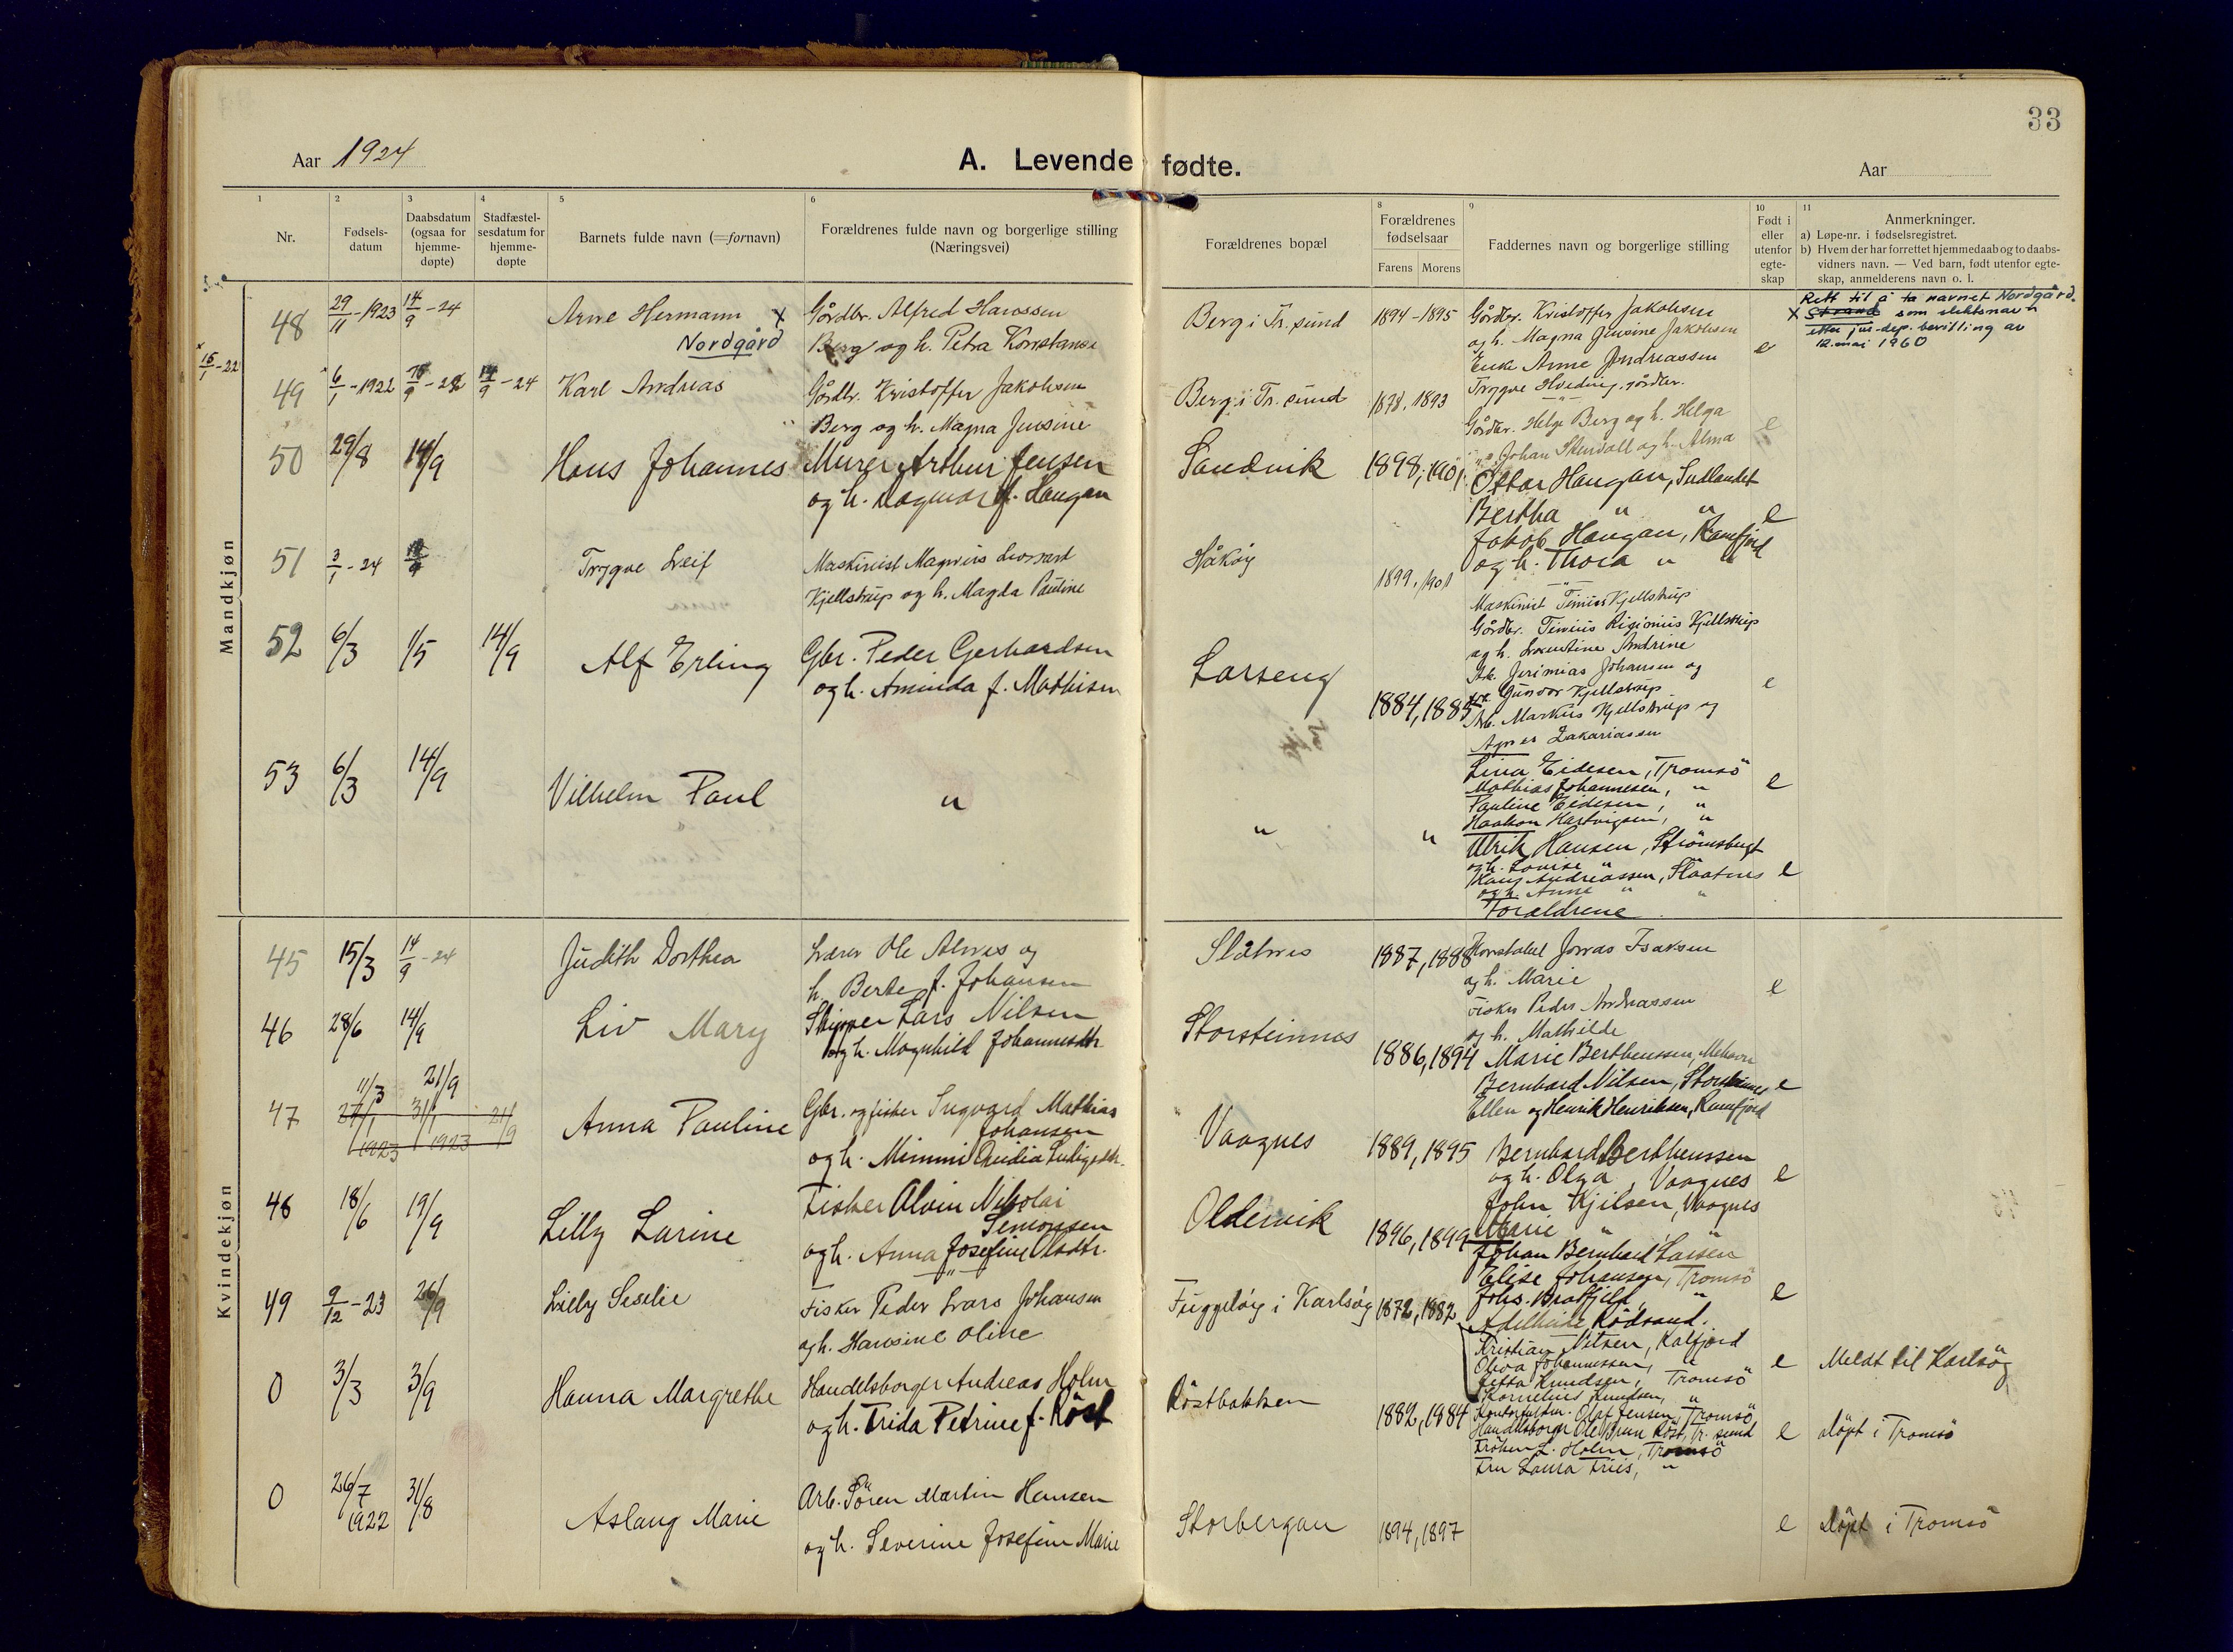 33
Aar 1924
A. Levende fødte.
Aar
1 2 3 4 5 6 8 9 10 11
Nr.
Fødsels-
datum
Daabsdatum
(ogsaa for
hjemme-
døpte)
Stadfæstel-
sesdatum for
hjemme-
døpte
Barnets fulde navn (=fornavn)
Forældrenes fulde navn og borgerlige stilling
(Næringsvei)
Forældrenes bopæl
Forældrenes
fødselsaar
Farens Morens
Faddernes navn og borgerlige stilling
Født i
eller
utenfor
egte-
skap
Anmerkninger.
a) Løpe-nr. i fødselsregistret.
b) Hvem der har forrettet hjemmedaab og to daabs-
vidners navn. — Ved barn, født utenfor egte-
skap, anmelderens navn o. l.
Mandkjøn
48 29/11-1923 14/9-24 Arne Hermann x
Nordgård
Gårdbr. Alfred
Berg og h. Petra Konstanse
Berg i Tr. sund 1894-1895
Gårdbr. Kristoffer Jakobsen
og h. Magna Jensine Jakobsen
Enke Anne Andreassen
Trygve Hveding, gårdbr.
e
Rett til å ta navnet Nordgård
x Strand som slektsnavn
etter jus.dep. bevilling av
12. mai 1960
15/1-22
49 6/1-1922 14/9-24 Karl Andreas
Gårdbr. Kristoffer Jakobsen
Berg og h. Magna Jensine
Berg i Tr. sund 1878, 1893
Gårdbr. Helge Berg og h. Helga
" Johan Stenvoll og h. Alma
e
50 29/8 14/9 Hans Johannes
Murer Arthur Jensen
og h. Dagmar f. Haugan
Sandvik 1898, 1901
Ottar Haugan, Sudlandet
Bertha " "
Jakob Haugan, Ramfjord
og h. Thora " "
e
51 3/1-24 14/9 Trygve Leif
Maskinist Magnus
Kjellstrup og h. Magda Pauline
Håkøy 1899, 1901
Maskinist Kjellstrup
Gårdbr. Kjellstrup
og h. Andrine
Arb. Jerimias Johansen og
Gunvor Kjellstrup
Arb. Markus Kjellstrup og
Agnes Zakariassen
e
52 6/3 1/5 14/9 Alf Erling
Gbr. Peder Gerhardsen
og h. Aminda f. Mathisen
Larseng 1884, 1885
Lina Eidesen, Tromsö
Mathias Johannesen, "
Pauline Eidesen, "
Haakon Hartvigsen, "
e
53 6/3 14/9 Vilhelm Paul
" " "
Ulrik Hansen, Strömsbugt
og h. Lovise "
Hans Andreassen, Slaatnes
og h. Anne " "
Forældrene
e
Kvindekjøn
45 15/3 14/9-24 Judith Dorthea
Lærer Ole Alnæs og
h. Berte f. Johansen
Slåtnes 1887, 1888
Konstabel Jonas Isaksen
og h. Marie
Fisker Peder Andreassen
og h. Mathilde
e
46 28/6 14/9 Liv Mary
Skipper Lars Nilsen
og h. Magnhild Johannesdtr.
Storsteinnes 1886, 1894
Marie Berthenssen,
Bernhard Nilsen, Storsteinnes
Ellen og Henrik Henriksen, Ramfjord
e
47 11/3 21/9
27/1 1923 31/1 1923 21/9
Anna Pauline
Gbr. og fisker Ingvard Mathias
Johansen
og h. Mimmi
Vaagnes 1889, 1895
Bernhard Berthenssen
og h. Olga, Vaagnes
John Kjilsen, Vaagnes
Marie " "
e
48 18/6 19/9 Lilly Larine
Fisker Alvin Nikolai
Simonsen
og h. Anna Josefine Olsdtr.
Oldervik 1896, 1899
Johan Bernhard Larsen
Elise Johansen, Tromsö
Johs. Bratfjell "
Adelheide Rödsand.
e
49 9/12-23 26/9 Lilly Seselie
Fisker Peder Lars Johansen
og h. Hansine Oline
Fuggeløy i Karlsøy 1872, 1882
Kristian Nilsen, Kalfjord
Oleva Johannessen, "
Jitta Knudsen, Tromsö
Kornelius Knudsen, "
e Meldt til Karlsöy
0 3/3 3/9 Hanna Margrethe
Handelsborger Andreas Holm
og h. Frida Petrine f. Röst
Röstbakken 1882, 1884
Olaf Jensen, Tromsö
Handelsborger Ole Brun Röst, Tr. sund
Fröken L. Holm, Tromsö
Fru Laura Friis, "
e döpt i Tromsö
0 26/7 1922 31/8 Aslaug Marie
Arb. Sören Martin Hansen
og h. Severine Josefine Marie
Storbergan 1894, 1897
e döpt i Tromsö